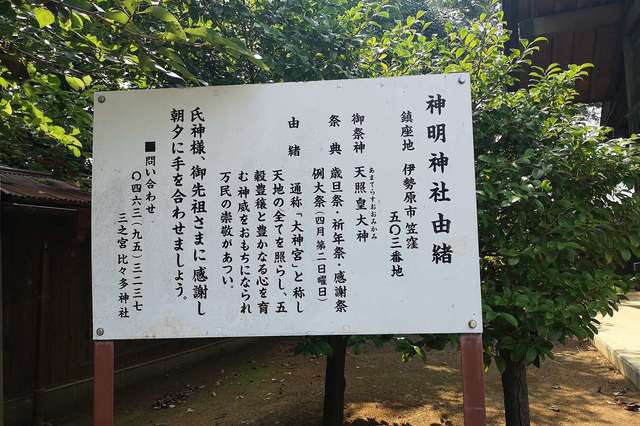 神明神社由緒
鎮座地　伊勢原市笠窪
五〇三番地
御祭神　天照皇大神
あまてらすおおみかみ
祭典　歳旦祭・祈年祭・感謝祭
例大祭（四月第二日曜日）
由緒　通称「大神宮」と称し
天地の全てを照らし、五
穀豊穣と豊かなる心を育
む神威をおもちになられ
万民の崇敬があつい。
氏神様、御先祖さまに感謝し
朝夕に手を合わせましょう。
■問い合わせ
〇四六三（九五）三二三七
三之宮　比々多神社